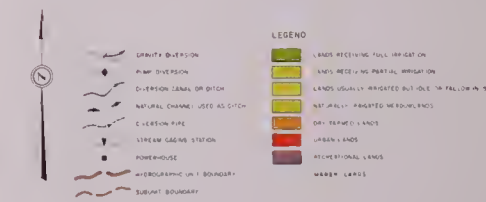 LEGEND
GRAVITY DIVERSION
PUMP DIVERSION
DIVERSION CANAL OR DITCH
NATURAL CHANNEL USED AS DITCH
DIVERSION PIPE
STREAM GAGING STATION
POWERHOUSE
HYDROGRAPHIC UNIT BOUNDARY
SUBUNIT BOUNDARY
LANDS RECEIVING FULL IRRIGATION
LANDS RECEIVING PARTIAL IRRIGATION
LANDS USUALLY IRRIGATED BUT IDLE OR FALLOW IN
NATURALLY IRRIGATED MEADOWLANDS
DRY FARMED LANDS
URBAN LANDS
RECREATIONAL LANDS
LANDS